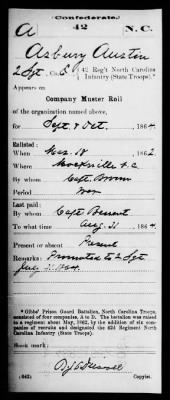 (Confederate.)
A 42 N.C.
Asbury Austin
2 Sgt, Co. , 42 Reg't North Carolina
Infantry (State Troops).*
Appears on
Company Muster Roll
of the organization named above,
for Sept & Oct, 1864.
Enlisted:
When Mar. 18, 1862.
Where Mocksville N.C.
By whom Capt. Brown
Period War
Last paid:
By whom Capt
To what time Aug. 31, 1864.
Present or absent Present
Remarks: Promoted to 2 Sgt
1864.
*Gibbs' Prison Guard Battalion, North Carolina Troops,
consisted of four companies, A to D. The battalion was
raised to a regiment about May, 1862, by the addition of six com-
panies of recruits and designated the 42d Regiment North
Carolina Infantry (State Troops).
Book mark:
(642) Copyist.